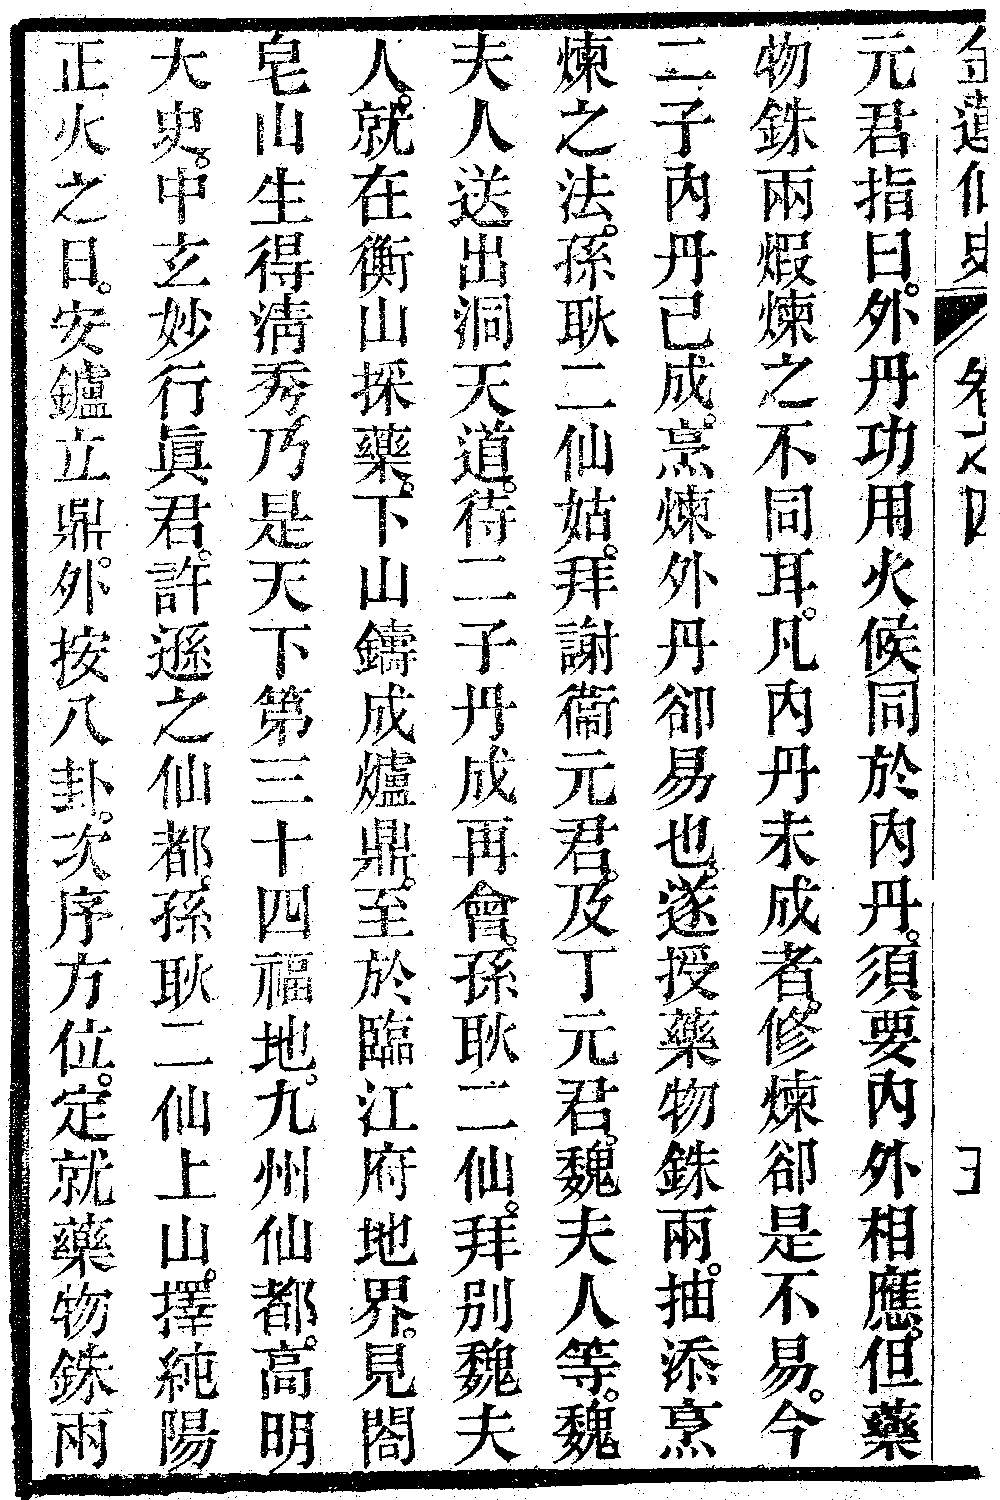 金蓮仙史 卷之四 五
元君指曰。外丹功用火候同於內丹。須要內外相應。但藥
物銖兩煆煉之不同耳。凡內丹未成者。修煉卻是不易。今
二子內丹已成。烹煉外丹卻易也。遂授藥物銖兩。抽添烹
煉之法。孫耿二仙姑。拜謝衞元君。及丁元君。魏夫人等。魏
夫人送出洞天道。待二子丹成再會。孫耿二仙。拜別魏夫
人。就在衡山採藥。下山鑄成爐鼎。至於臨江府地界。見閤
皂山生得清秀。乃是天下第三十四福地。九州仙都。高明
大史。中玄妙行眞君。許遜之仙都。孫耿二仙上山。擇純陽
正火之日。安鑪立鼎。外按八卦。次序方位。定就藥物銖兩